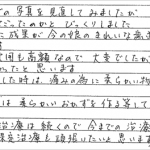 の写真を見返してみましたが
だったのかと びっくりしました
た成果が今の娘のきれいな歯
費用も高額なので大変でしたが
かったと思います
した時は、痛みの為に柔らかい物
は柔らかいおかずを作る等して
治療は続くので今までの治療
矯正治療も頑張りたいと思います